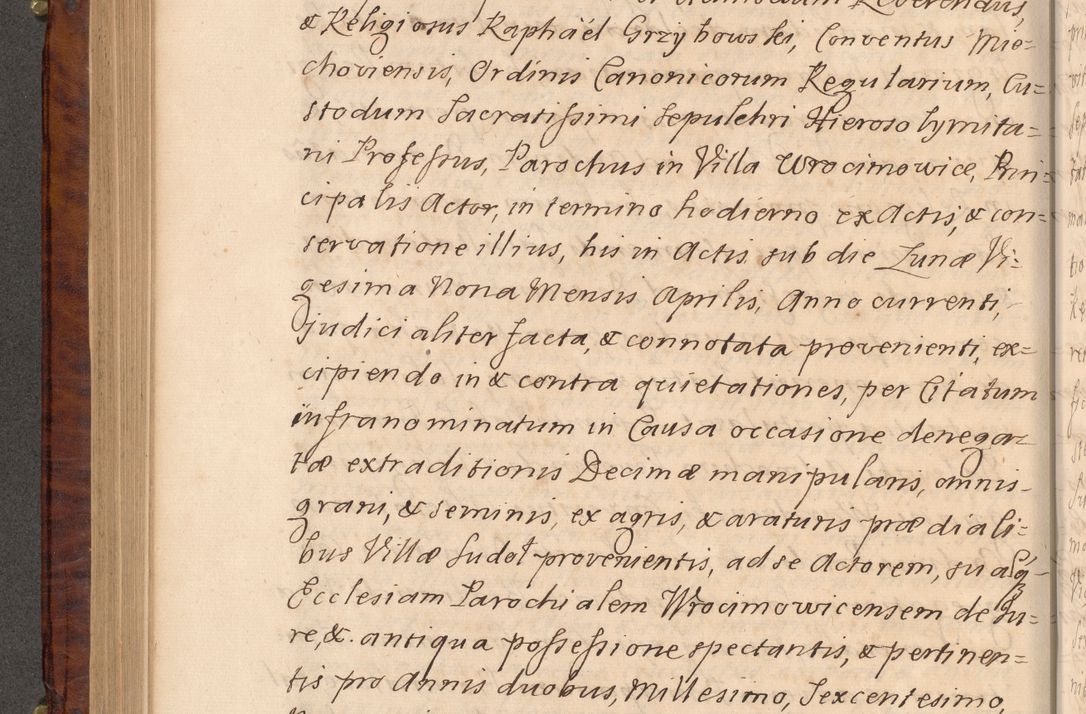 Reverendus,
& Religiosus Raphäel Grzybowski, Conventus Mie=
choviensis, Ordinis Canonicorum Regularium, Cu=
stodum Sacratissimi Sepulchri Hierosolymita=
ni Professus, Parochus in Villa Wrocimowice, Prin=
cipalis Actor, in termino hodierno ex Actis, & con=
servatione illius, his in Actis sub die Lunæ Vi=
gesima Nona Mensis Aprilis, Anno currenti,
judicialiter facta, & connotata provenienti, ex=
cipiendo in & contra quietationes, per Citatum
infranominatum in Causa occasione denega=
tæ extraditionis Decimæ manipularis, omnis
grani, & seminis, ex agris, & araturis prædiali=
bus Villæ Sudoł provenientis, ad se Actorem, suamq;
Ecclesiam Parochialem Wrocimowicensem de Ju=
re, &. antiqua possessione spectantis, & pertinen=
tis pro Annis duobus, Millesimo, Sexcentesimo,